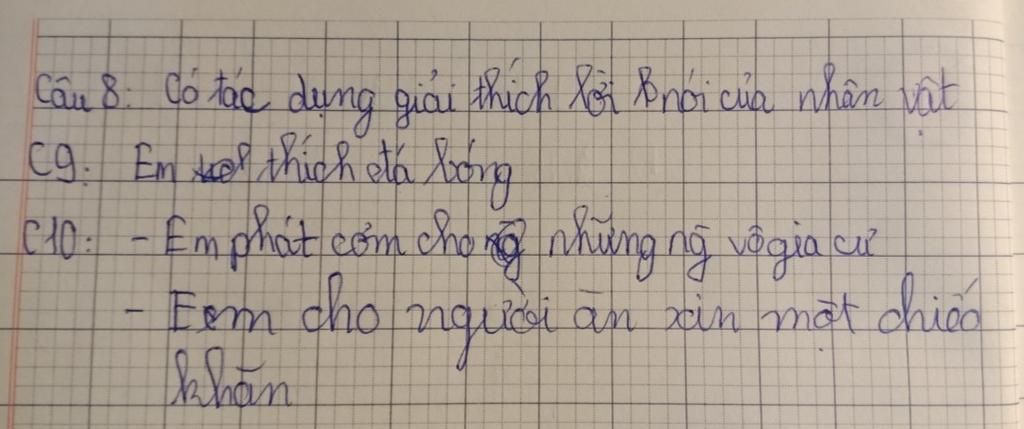 Câu 8: Có tác dụng giải thích lời nói của nhân vật
C9: Em thích đá bóng
C10: - Em phát cơm cho những ng̃ vô gia cư
- Eem cho người ăn xin một chiếc
khăn